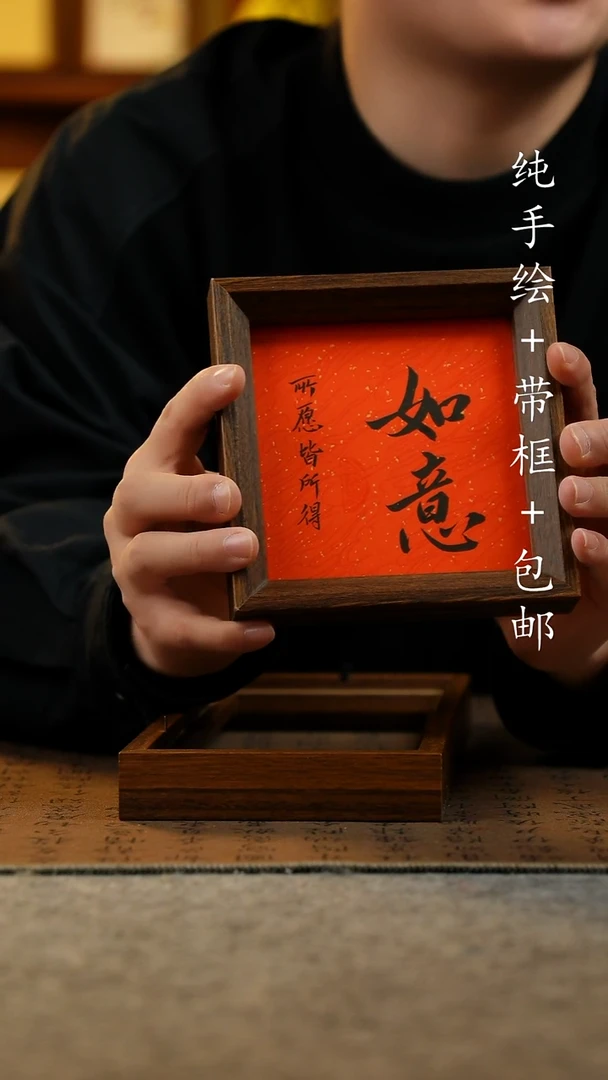 如意
所愿皆所得
纯手绘+带框+包邮